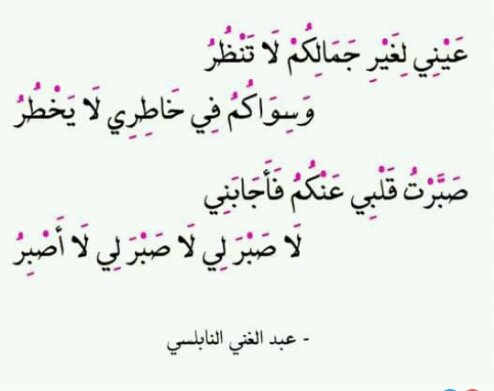 عَيْنِي لِغَيْرِ جَمَالِكُمْ لَا تَنْظُرُ
وَسِوَاكُمُ فِي خَاطِرِي لَا يَخْطُرُ
صَبَّرْتُ قَلْبِي عَنْكُمُ فَأَجَابَنِي
لَا صَبْرَ لِي لَا صَبْرَ لِي لَا أَصْبِرُ
- عبد الغني النابلسي